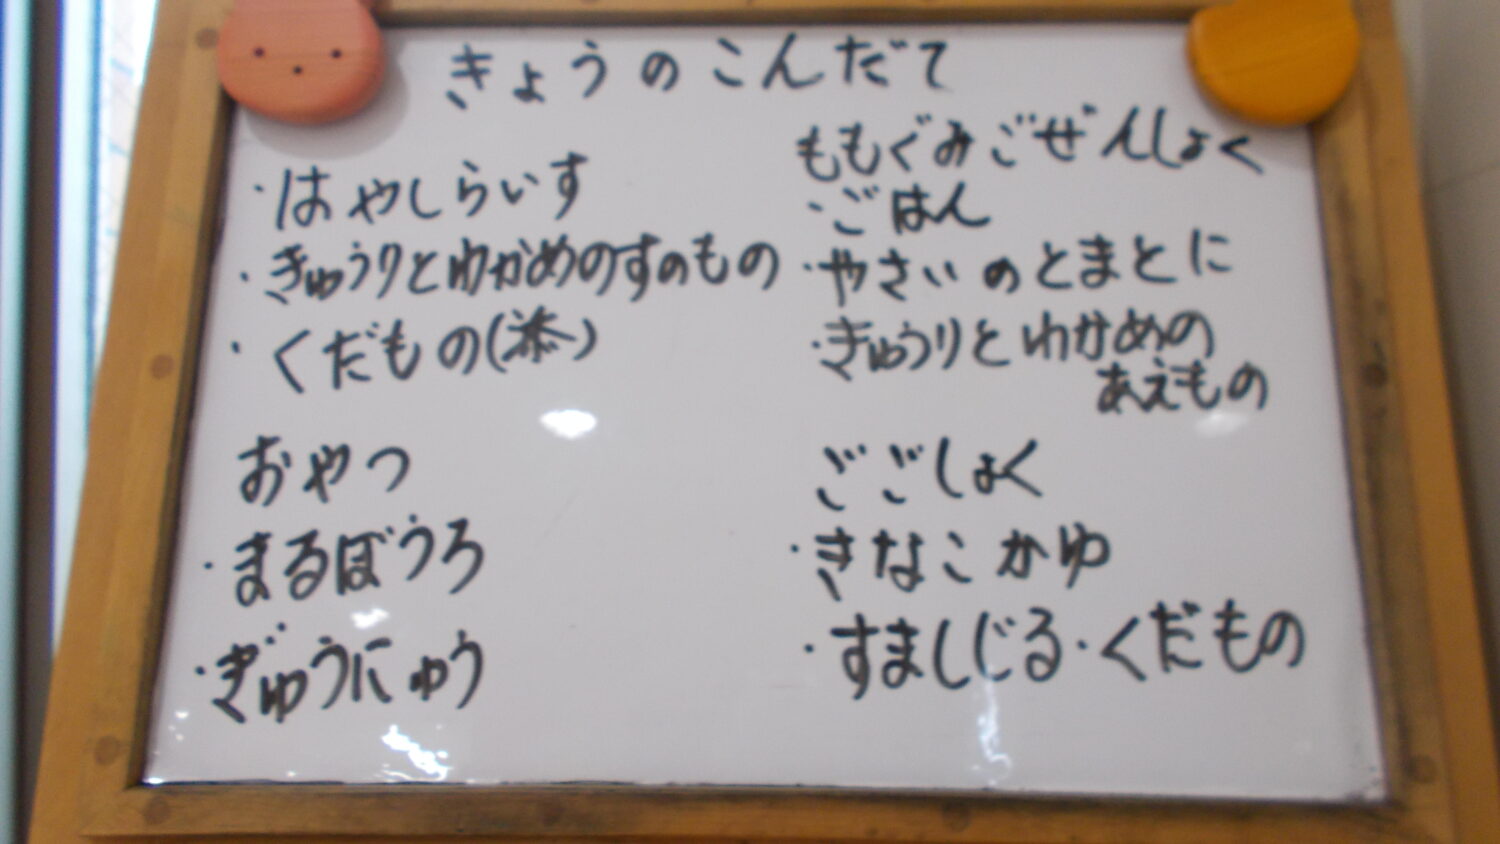 きょうのこんだて
・はやしらいす
・きゅうりとわかめのすのもの
・くだもの()
おやつ
・まるぼうろ
・ぎゅうにゅう
ももぐみごぜんしょく
・ごはん
・やさいのとまとに
・きゅうりとわかめの
あえもの
ごごしょく
・きなこかゆ
・すましじる・くだもの